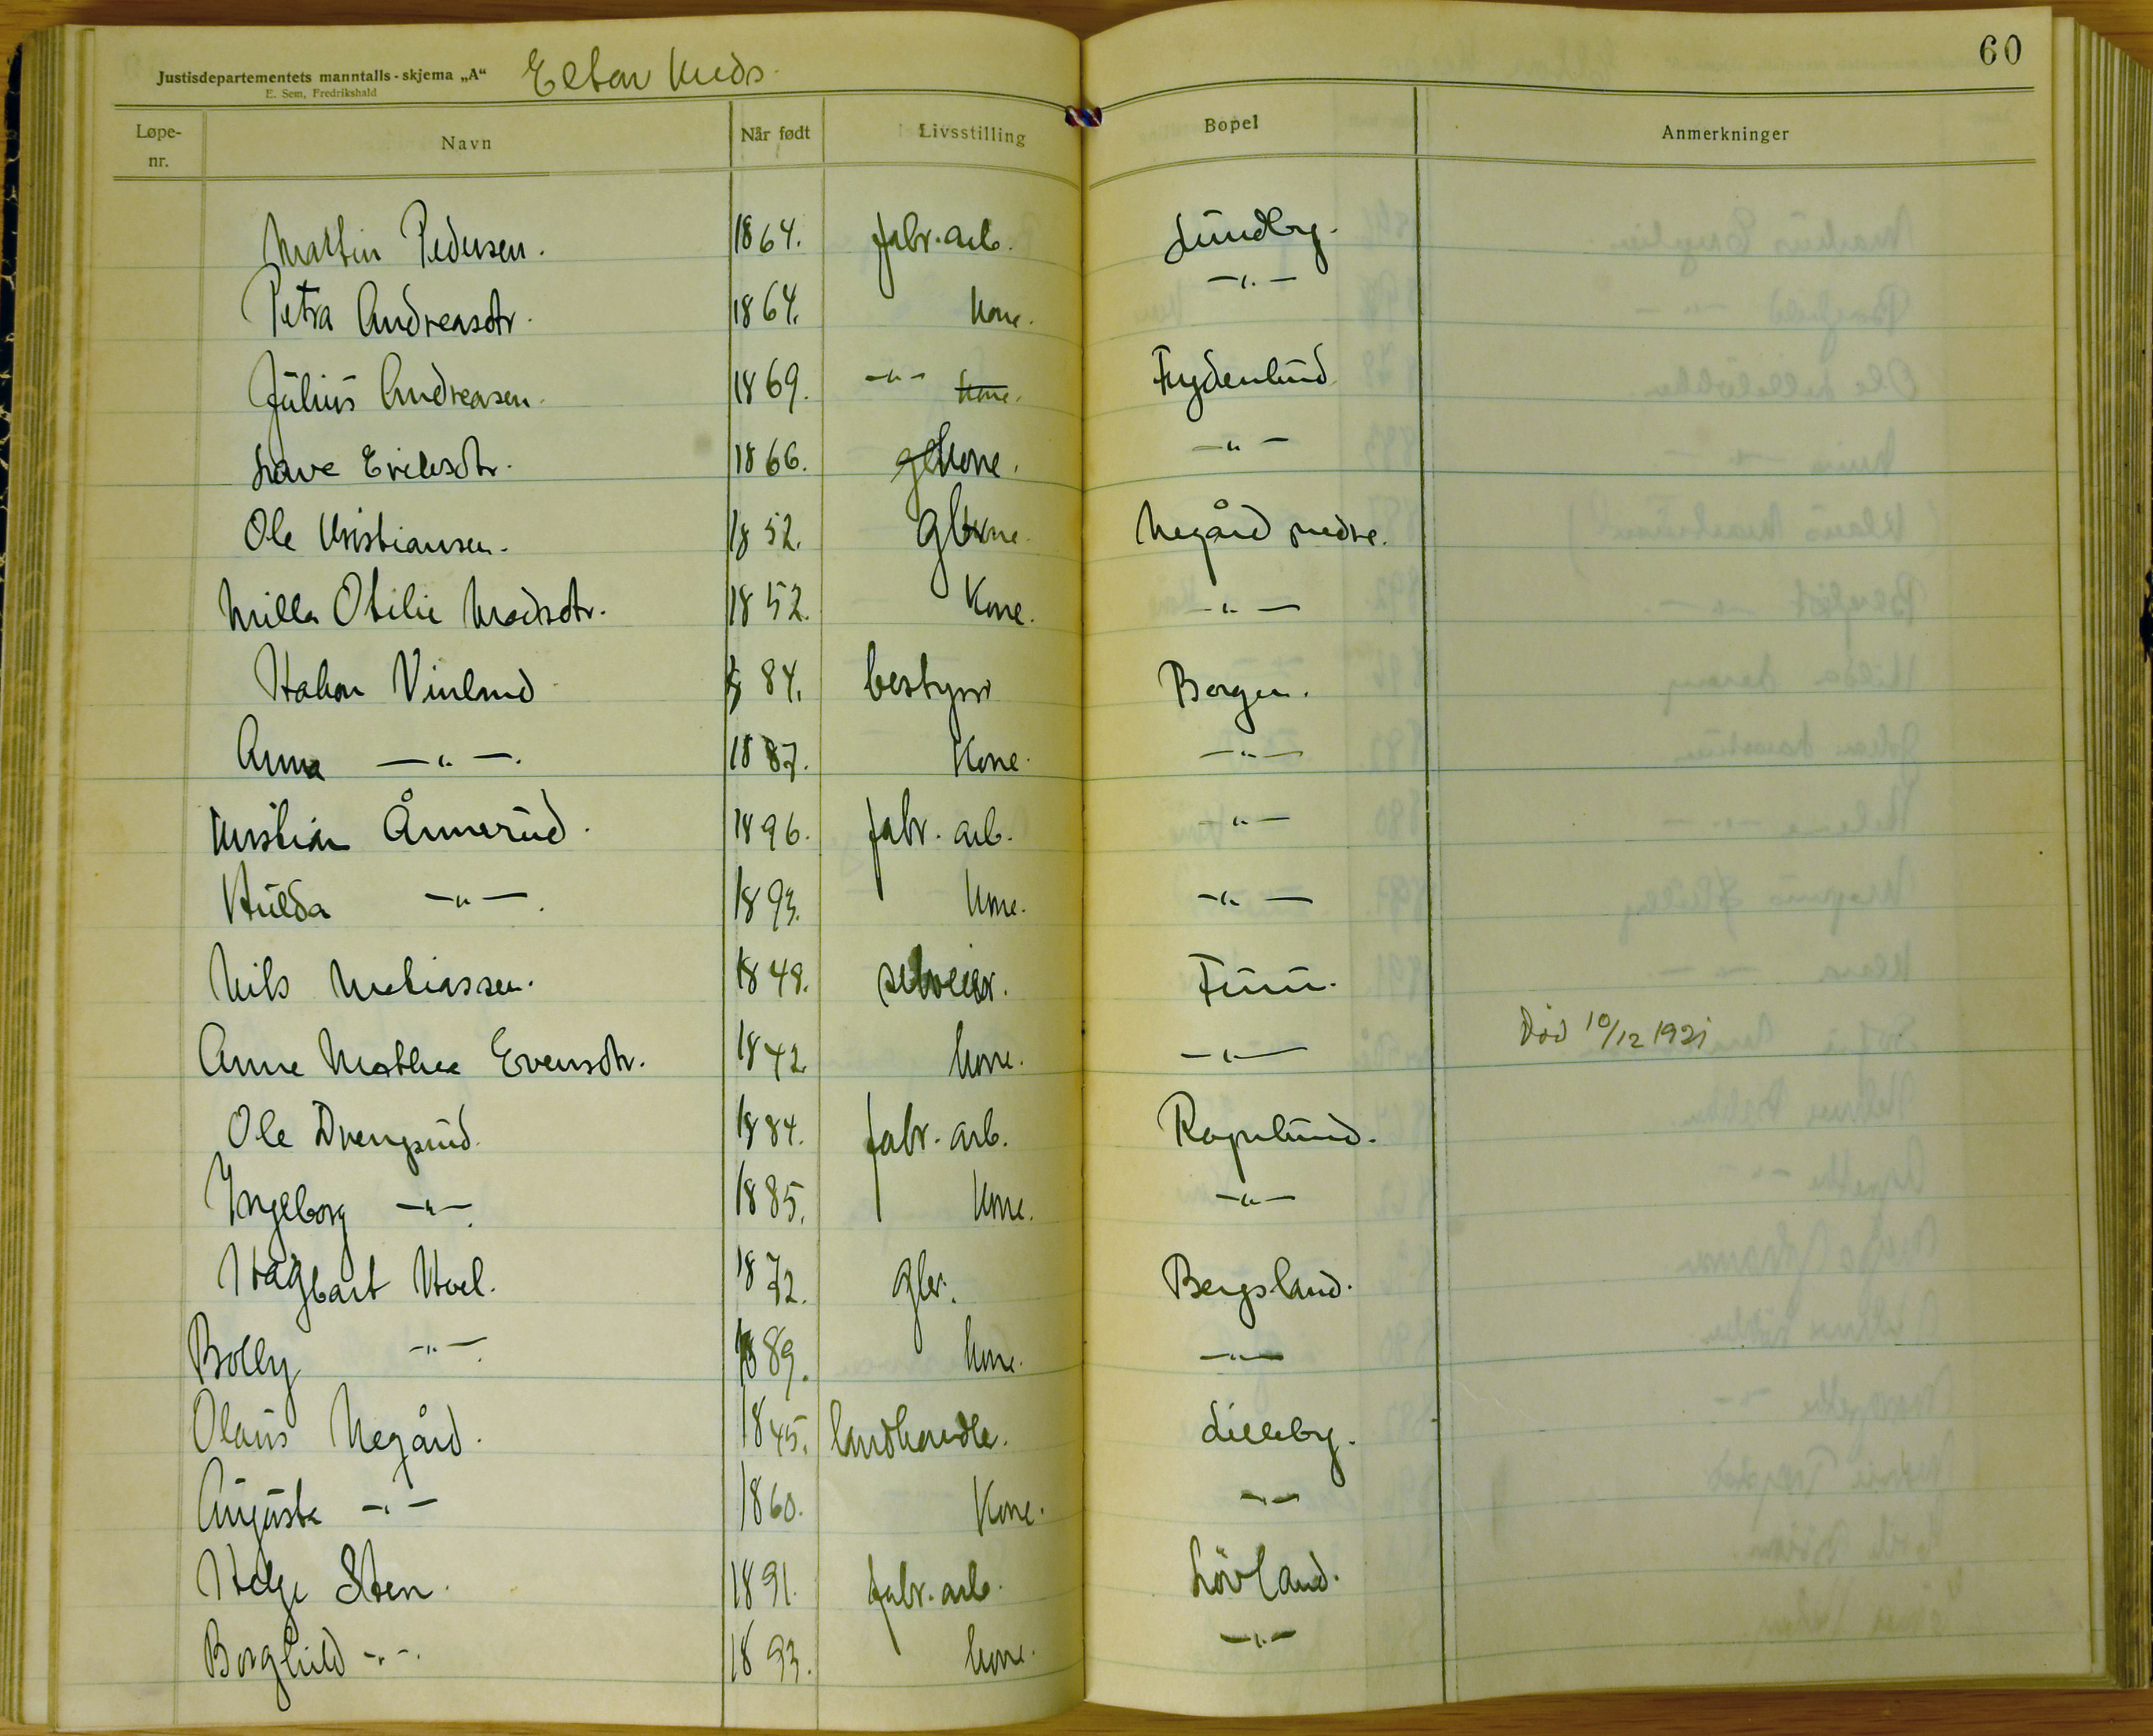 60
Justisdepartementets manntalls-skjema „A“ Elton kreds.
E. Sem, Fredrikshald
Løpe-nr. Navn Når født Livsstilling Bopel Anmerkninger
Martin Pedersen. 1864. fabr. arb. Lundby.
Petra Andreasdtr. 1864. kone. -"-
Julius Andreasen. 1869. -"- kone. Frydenlund
Lave Eriksdtr. 1866. kone. -"-
Ole Kristiansen. 1852. Negård nedre.
Milla Otilie Madsdtr. 1852. Kone. -"-
Hakon Vinlund 84. bestyrer Borgen.
Anna -"-. 1887. Kone. -"-
Kristian Ånnerud. 1896. fabr. arb. -"-
Hulda -"-. 1893. kone. -"-
Nils Matiassen. 1848. selveier. Furu.
Anne Mathea Evensdtr. 1842. kone. -"- Død 10/12 1921
Ole Drengsrud. 1884. fabr. arb. Rognlund.
Ingeborg -"-. 1885. kone. -"-
Hagbart Hoel. 1872. gbr. Bergsland.
Bolly -"-. 1889. kone. -"-
Olaus Negård. 1845. landhandle. Lilleby.
Augusta -"- 1860. Kone. -"-
Helge Sten. 1891. fabr. arb. Lövland.
Borghild -"-. 1893. kone. -"-